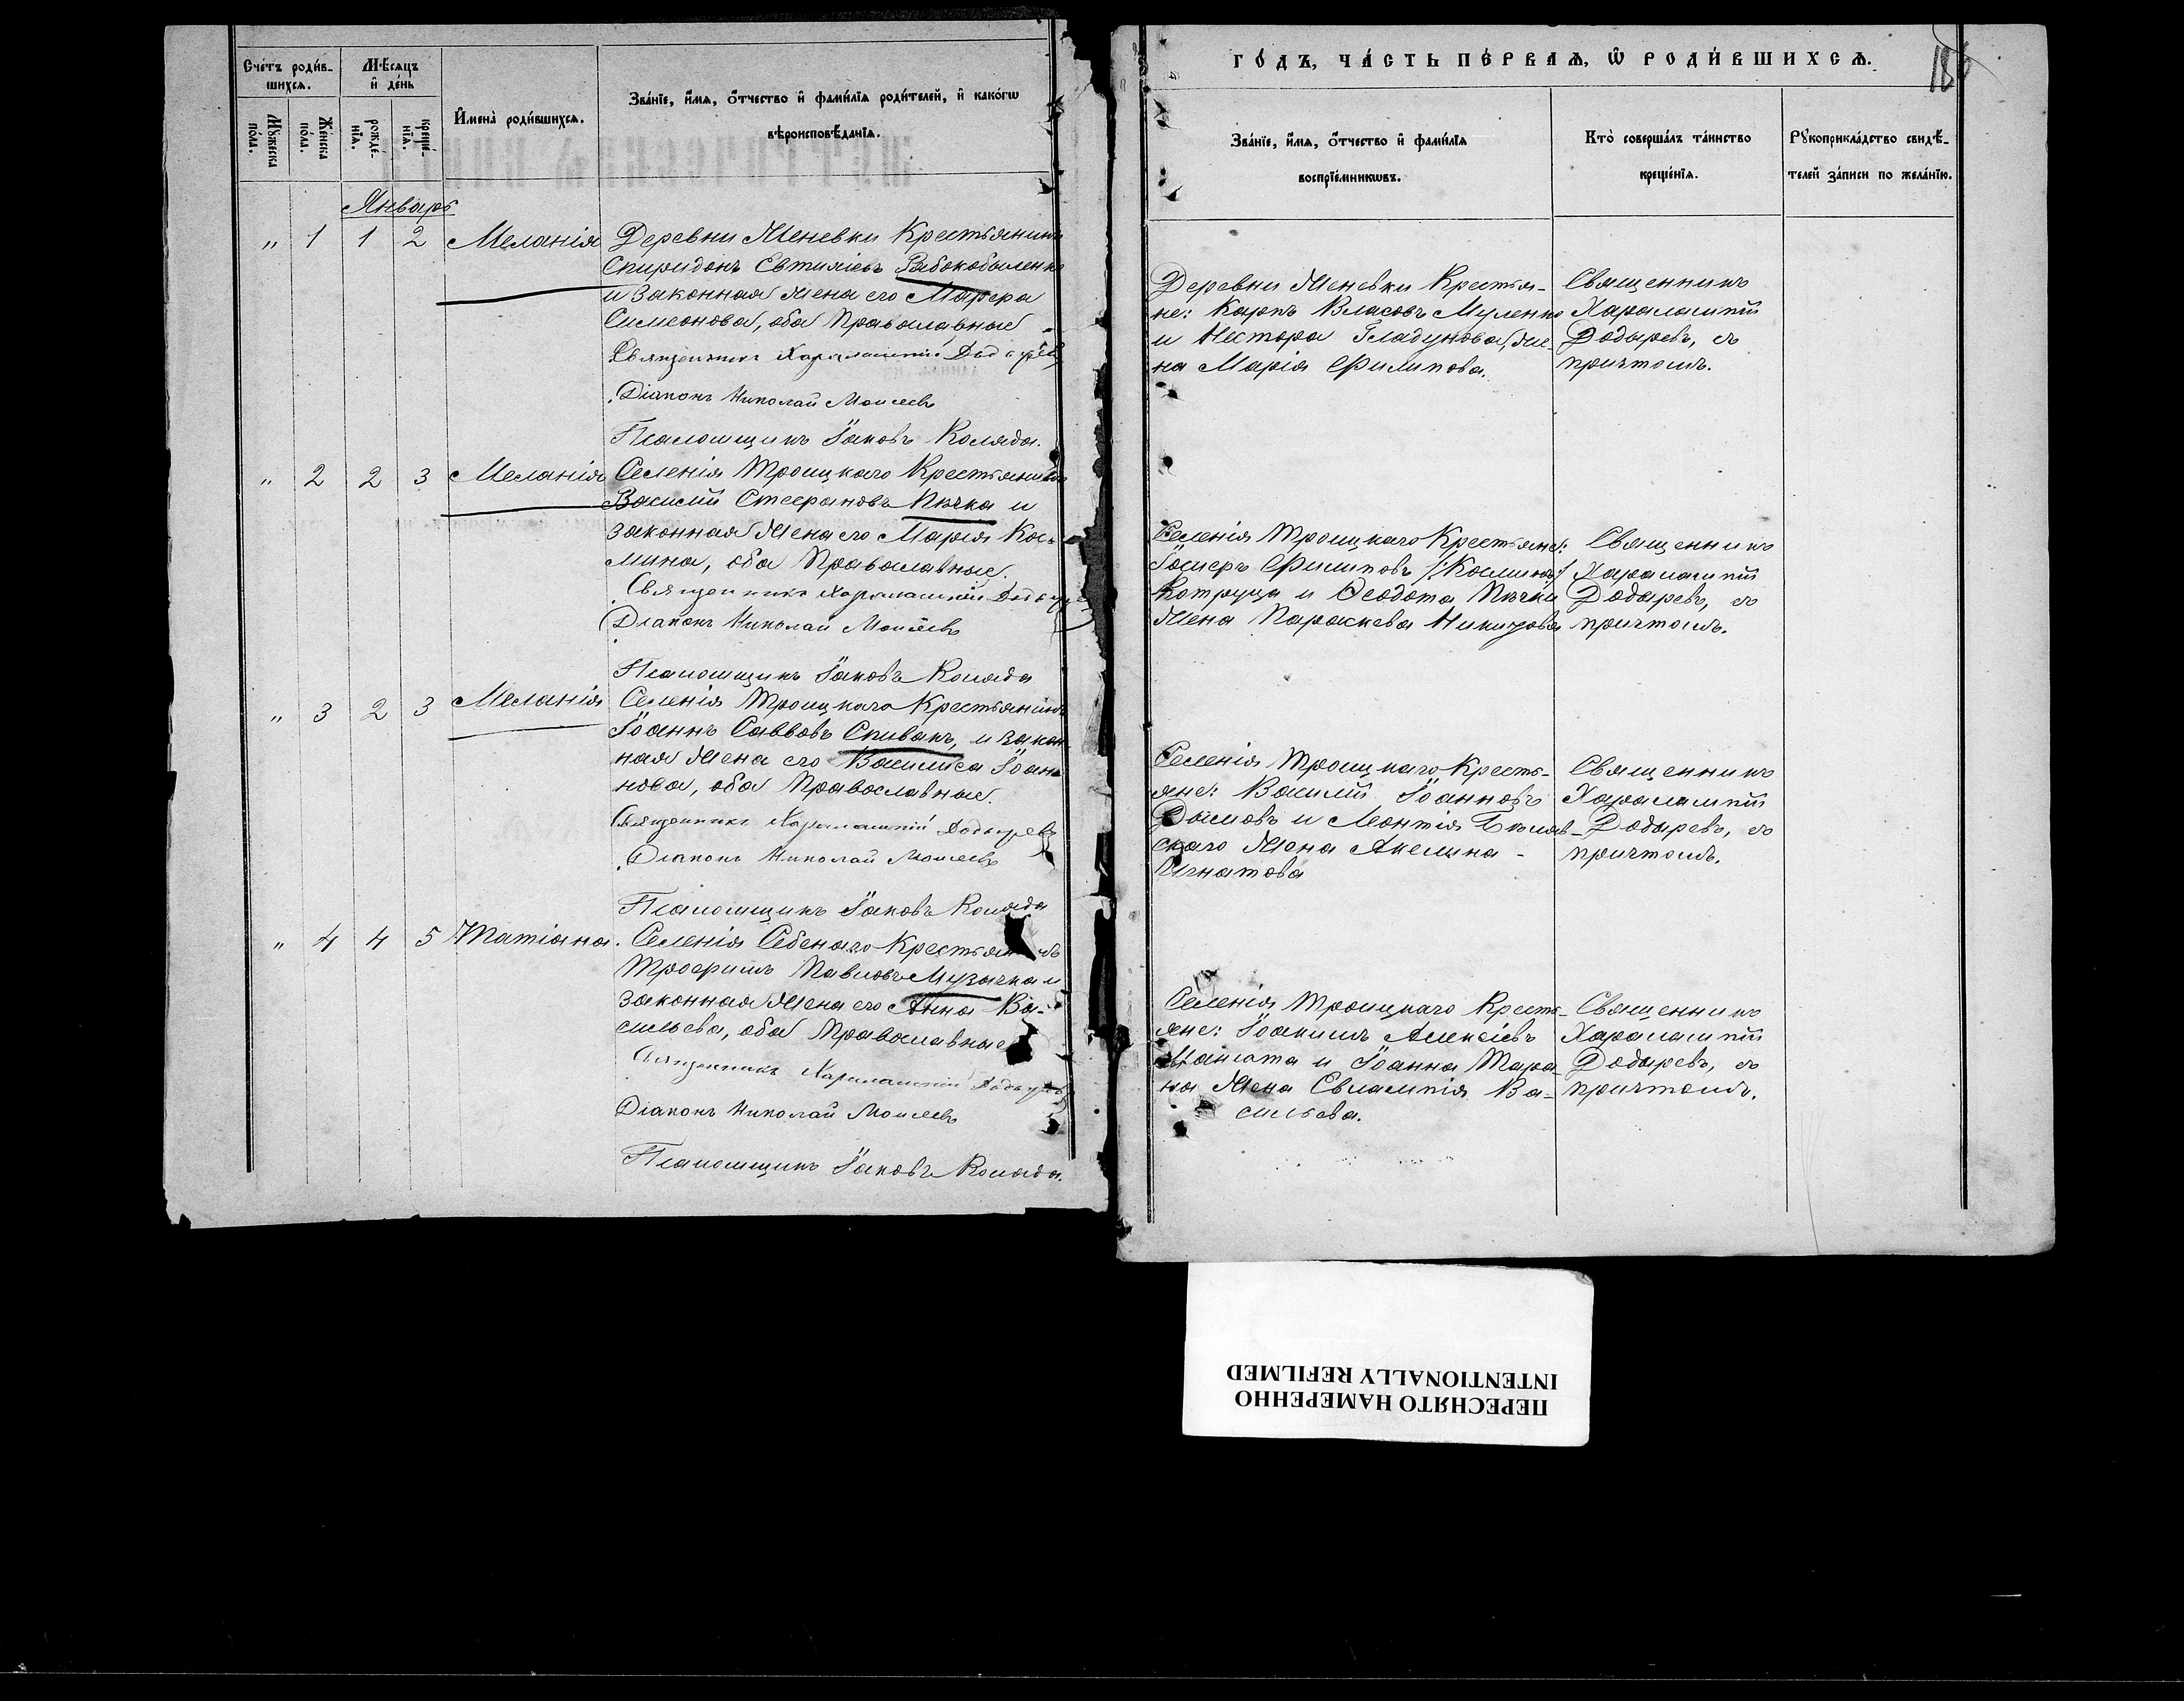 Сче́тъ роди́в-
шихсѧ.
Мѣ́сѧцъ
и҆ де́нь
Мꙋ́жеска
по́ла.
Же́нска
по́ла.
рожде́-
нїѧ.
креще́-
нїѧ.
И҆мена̀ роди́вшихсѧ.
Зва́нїе, и҆́мѧ, ѻ҆́тчество и҆ фами́лїѧ роди́телей, и҆ како́гѡ
вѣроисповѣ́данїѧ.
Январь
" 1 1 2 Меланія
Деревни Женевки Крестьянинъ
Спиридонъ Евтихіевъ
и законная жена его Марѳа
Симеонова, оба Православные
Священникъ Харалампій
Діаконъ Николай Моисеевъ
Псаломщикъ Іаковъ Коляда.
" 2 2 3 Меланія
Селенія Троицкаго Крестьянинъ
Василій Стефановъ Пѣчка и
законная жена его Марія Кос-
мина, оба Православные.
Священникъ Харалампій
Діаконъ Николай Моисеевъ
Псаломщикъ Іаковъ Коляда
" 3 2 3 Меланія
Селенія Троицкаго Крестьянинъ
Іоаннъ Саввовъ Спивакъ, и закон-
ная жена его Василиса Іоан-
нова, оба Православные.
Священникъ Харалампій Додыревъ
Діаконъ Николай Моисеевъ
Псаломщикъ Іаковъ Коляда
" 4 4 5 Татіана.
Селенія Себенаго Крестьянинъ
Трофимъ Павловъ Музычка и
законная жена его Анна Ва-
сильева, оба Православные
Священникъ Харалампій Додыревъ
Діаконъ Николай Моисеевъ
Псаломщикъ Іаковъ Коляда.
ГО́ДЪ, ЧА́СТЬ ПЕ́РВАѦ, Ѡ҆ РОДИ́ВШИХСѦ.
Зва́нїе, и҆́мѧ, ѻ҆́тчество и҆ фами́лїѧ
воспрїе́мникѡвъ.
Кто̀ соверша́лъ та́инство
креще́нїѧ.
Рꙋкоприкла́дство свидѣ́-
телей за́писи по жела́нїю.
Деревни Женевки Крестья-
не: Карпъ Власовъ Муленко
и Нестора Гладунова, же-
на Марія Филипова.
Священникъ
Харалампій
Додыревъ, съ
причтомъ.
Селенія Троицкаго Крестьяне:
Филиповъ
Котруца и Ѳеодота Пѣчки
жена Параскева
Священникъ
Харалампій
Додыревъ, съ
причтомъ.
Селенія Троицкаго Кресть-
яне: Василій Іоанновъ
Дымовъ и Леонтія Бѣляв-
скаго жена Акелина
Игнатова
Священникъ
Харалампій
Додыревъ, съ
причтомъ.
Селенія Троицкаго Кресть-
яне: Іоакимъ Алексіевъ
и Іоанна Тара-
на жена Евлампія Ва-
сильева.
Священникъ
Харалампій
Додыревъ, съ
причтомъ.
ПЕРЕСНЯТО НАМЕРЕННО
INTENTIONALLY REFILMED